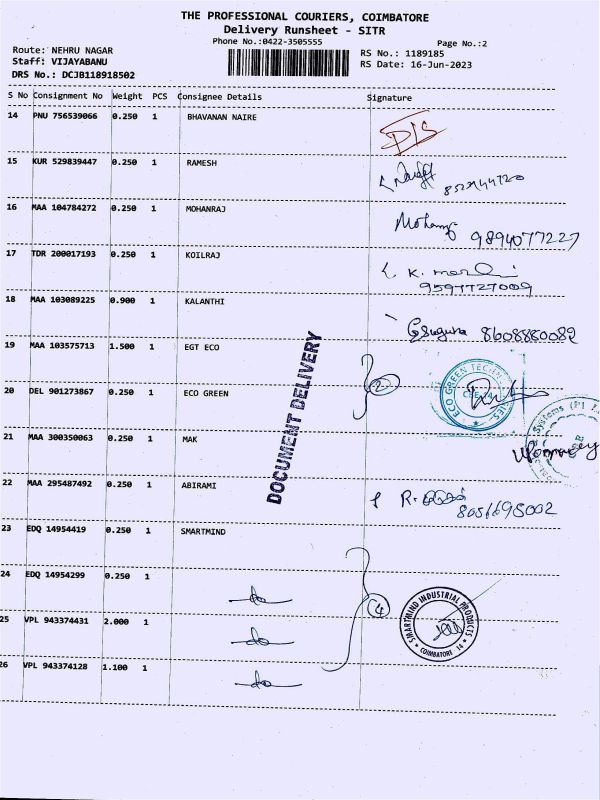 THE PROFESSIONAL COURIERS, COIMBATORE
Delivery Runsheet - SITR
Phone No.:0422-3505555
Page No.:2
Route: NEHRU NAGAR
RS No.: 1189185
Staff: VIJAYABANU
RS Date: 16-Jun-2023
DRS No.: DCJB118918502
S No Consignment No Weight PCS Consignee Details Signature
14 PNU 756539066 0.250 1 BHAVANAN NAIRE
15 KUR 529839447 0.250 1 RAMESH
16 MAA 104784272 0.250 1 MOHANRAJ Mohan
9894077227
17 TDR 200017193 0.250 1 KOILRAJ
9597727009
18 MAA 103089225 0.900 1 KALANTHI Suguna 8608880082
19 MAA 103575713 1.500 1 EGT ECO
DOCUMENT DELIVERY
2
ECO GREEN TECHNOLOGIES
20 DEL 901273867 0.250 1 ECO GREEN
21 MAA 300350063 0.250 1 MAK
Systems (P)
22 MAA 295487492 0.250 1 ABIRAMI R.
23 EDQ 14954419 0.250 1 SMARTMIND
24 EDQ 14954299 0.250 1
do
4
SMARTMIND INDUSTRIAL PRODUCTS
COIMBATORE 14
25 VPL 943374431 2.000 1
do
26 VPL 943374128 1.100 1
do